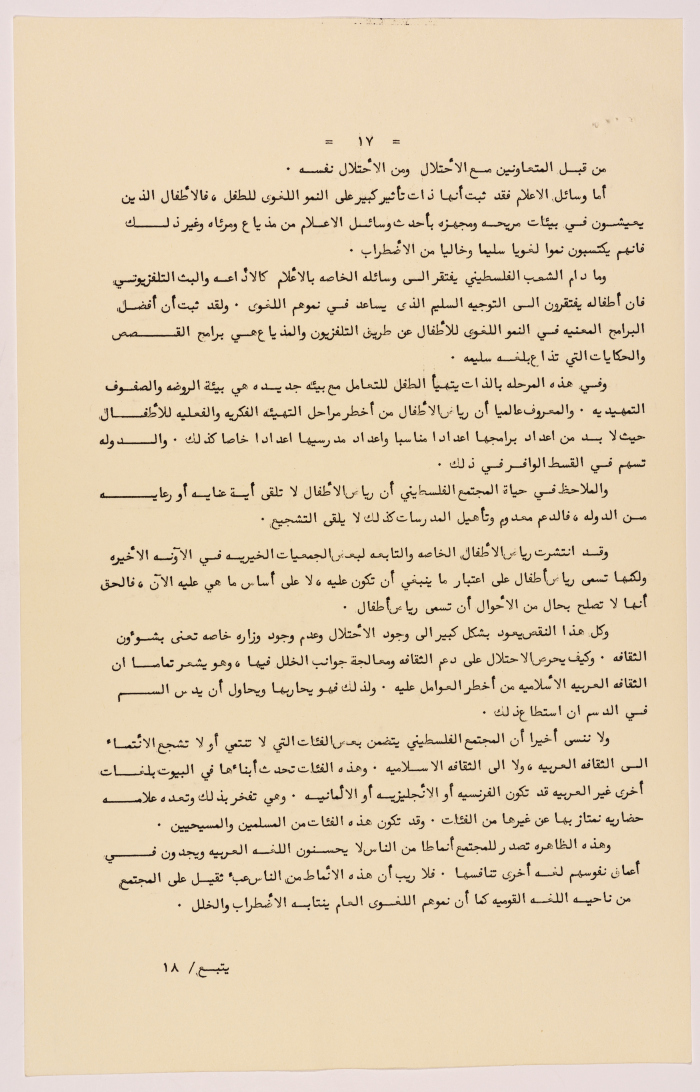 = ١٧ =
من قبل المتعاونين مع الأحتلال ومن الأحتلال نفسه ٠
أما وسائل الاعلام فقد ثبت أنها ذات تأثير كبير على النمو اللغوى للطفل ، فالأطفال الذين
يعيشون في بيئات مريحه ومجهزه بأحدث وسائل الاعلام من مذياع ومرئاه وغير ذلك
فانهم يكتسبون نموا لغويا سليما وخاليا من الأضطراب ٠
وما دام الشعب الفلسطيني يفتقر الى وسائله الخاصه بالأعلام كالأذاعه والبث التلفزيوني
فان أطفاله يفتقرون الى التوجيه السليم الذى يساعد في نموهم اللغوى ٠ ولقد ثبت أن أفضل
البرامج المعنيه في النمو اللغوى للأطفال عن طريق التلفزيون والمذياع هي برامج القصص
والحكايات التي تذاع بلغه سليمه ٠
وفي هذه المرحله بالذات يتهيأ الطفل للتعامل مع بيئه جديده هي بيئة الروضه والصفوف
التمهيديه ٠ والمعروف عالميا أن رياض الأطفال من أخطر مراحل التهيئه الفكريه والفعليه للأطفال
حيث لا بد من اعداد برامجها اعدادا مناسبا واعداد مدرسيها اعدادا خاصا كذلك ٠ والدوله
تسهم في القسط الوافر في ذلك ٠
والملاحظ في حياة المجتمع الفلسطيني أن رياض الأطفال لا تلقى أية عنايه أو رعايه
من الدوله ، فالدعم معدوم وتأهيل المدرسات كذلك لا يلقى التشجيع ٠
وقد انتشرت رياض الأطفال الخاصه والتابعه لبعض الجمعيات الخيريه في الآونه الأخيره
ولكنها تسعى رياض أطفال على اعتبار ما ينبغي أن تكون عليه ، لا على أساس ما هي عليه الآن ، فالحق
أنها لا تصلح بحال من الأحوال أن تسعى رياض أطفال ٠
وكل هذا النقص يعود بشكل كبير الى وجود الأحتلال وعدم وجود وزاره خاصه تعنى بشوءون
الثقافه ٠ وكيف يحرص الاحتلال على دعم الثقافه ومعالجة جوانب الخلل فيها ، وهو يشعر تماما ان
الثقافه العربيه الأسلاميه من أخطر العوامل عليه ٠ ولذلك فهو يحاربها ويحاول أن يدس السم
في الدسم ان استطاع ذلك ٠
ولا ننسى أخيرا أن المجتمع الفلسطيني يتضمن بعض الفئات التي لا تنتمي أو لا تشجع الأنتماء
الى الثقافه العربيه ، ولا الى الثقافه الاسلاميه ٠ وهذه الفئات تحدث أبناءها في البيوت بلغات
أخرى غير العربيه قد تكون الفرنسيه أو الأنجليزيه أو الألمانيه ٠ وهي تفخر بذلك وتعده علامه
حضاريه نمتاز بها عن غيرها من الفئات ٠ وقد تكون هذه الفئات من المسلمين والمسيحيين ٠
وهذه الظاهره تصدر للمجتمع أنماطا من الناس لا يحسنون اللغه العربيه ويجدون في
أعماق نفوسهم لغه أخرى تنافسها ٠ فلا ريب أن هذه الأنماط من الناس عبء ثقيل على المجتمع
من ناحيه اللغه القوميه كما أن نموهم اللغوى العام ينتابه الأضطراب والخلل ٠
يتبع / ١٨